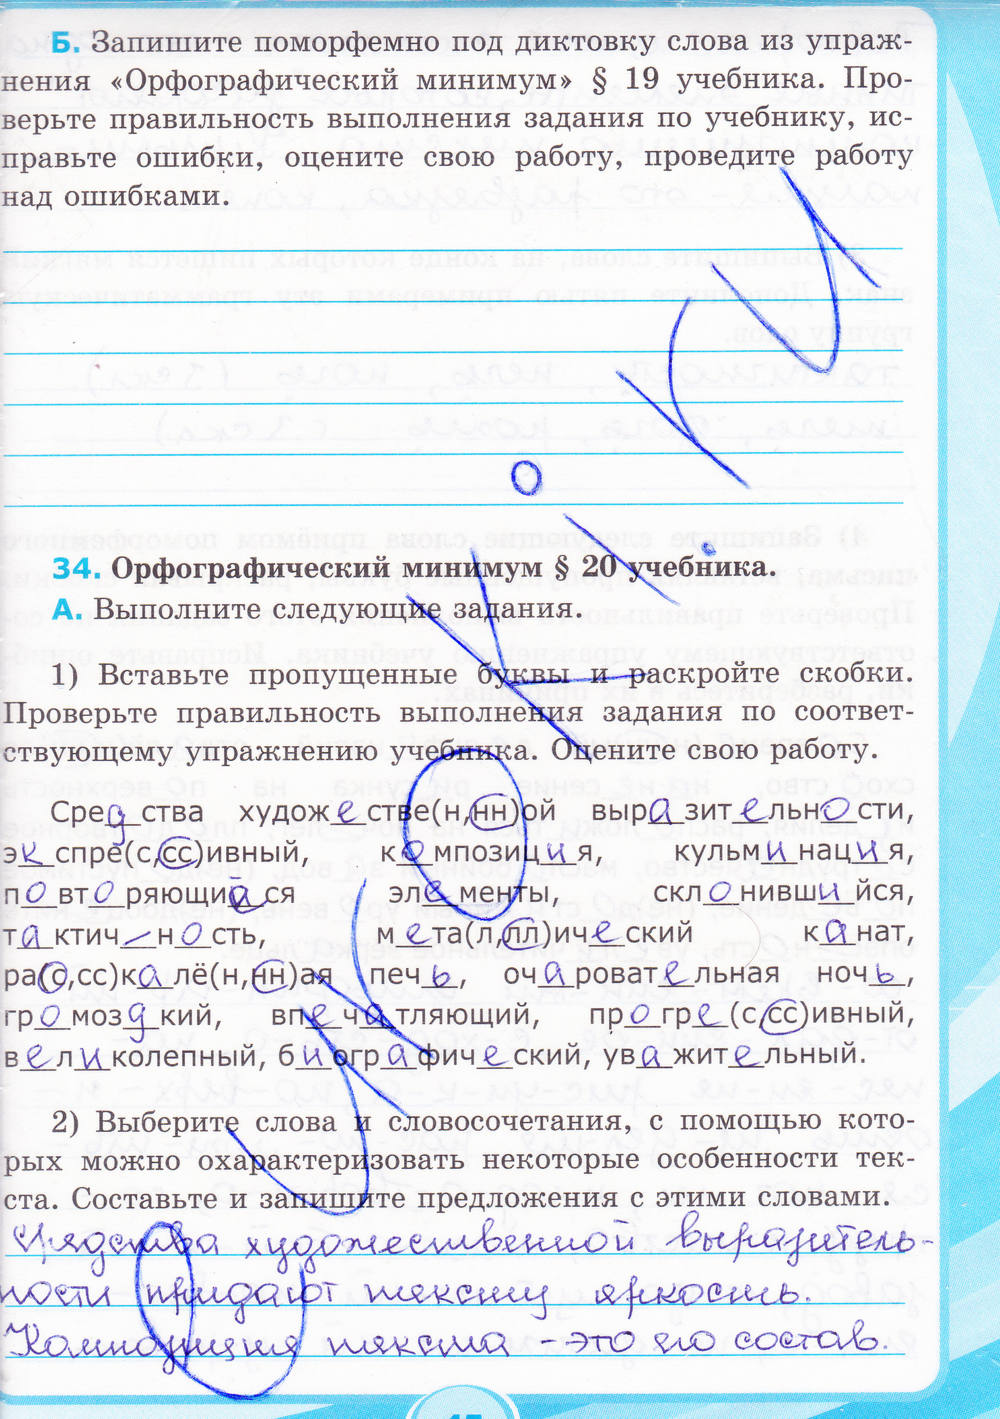 Б. Запишите поморфемно под диктовку слова из упраж-
нения «Орфографический минимум» § 19 учебника. Про-
верьте правильность выполнения задания по учебнику, ис-
правьте ошибки, оцените свою работу, проведите работу
над ошибками.
34. Орфографический минимум § 20 учебника.
А. Выполните следующие задания.
1) Вставьте пропущенные буквы и раскройте скобки.
Проверьте правильность выполнения задания по соответ-
ствующему упражнению учебника. Оцените свою работу.
Средства художестве(н,нн)ой выразительности,
экспре(с,сс)ивный, композиция, кульминация,
повторяющийся элементы, склонившийся,
тактичность, мета(л,лл)ический канат,
ра(с,сс)калё(н,нн)ая печь, очаровательная ночь,
громоздкий, впечатляющий, прогре(с,сс)ивный,
великолепный, биографический, уважительный.
2) Выберите слова и словосочетания, с помощью кото-
рых можно охарактеризовать некоторые особенности тек-
ста. Составьте и запишите предложения с этими словами.
Средства художественной выразитель-
ности придают тексту яркость.
Композиция текста - это его состав.